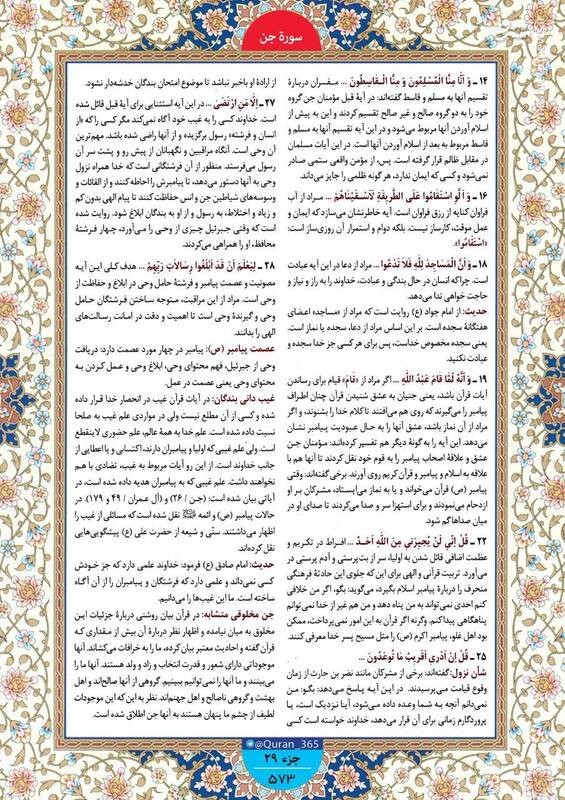 سورة جن
۱۴ ـ وَ أَنَّا مِنَّا الْمُسْلِمُونَ وَ مِنَّا الْقَاسِطُونَ ... مفسران دربارهٔ
تقسیم آنها به مسلم و قاسط گفته‌اند: در آیهٔ قبل مؤمنان جن گروه
خود را به دو گروه صالح و غیر صالح تقسیم کردند و این به پیش از
اسلام آوردن آنها مربوط می‌شود و در این آیه تقسیم آنها به مسلم و
قاسط مربوط به بعد از اسلام آوردن آنها است. در این آیات مسلمان
در مقابل ظالم قرار گرفته است. پس، از مؤمن واقعی ستمی صادر
نمی‌شود و کسی که ایمان ندارد، هر گونه ظلمی را جایز می‌داند.
۱۶ ـ وَ أَلَّوِ اسْتَقَامُوا عَلَى الطَّرِيقَةِ لَأَسْقَيْنَاهُمْ ... مراد از آب
فراوان کنایه از رزق فراوان است. آیه خاطرنشان می‌سازد که ایمان و
عمل موقت، کارساز نیست. بلکه دوام و استمرار آن روزی‌ساز است:
«اسْتَقَامُوا».
۱۸ ـ وَ أَنَّ الْمَسَاجِدَ لِلَّهِ فَلَا تَدْعُوا ... مراد از دعا در این آیه عبادت
است. چرا که انسان در حال بندگی و عبادت، خداوند را به راز و نیاز و
حاجت خواهی ندا می‌دهد.
حدیث: از امام جواد (ع) روایت است که مراد از «مساجد» اعضای
هفتگانهٔ سجده است. بر این اساس مراد از دعا، سجده یا نماز است.
یعنی سجده مخصوص خداست، پس برای هر کسی جز خدا سجده و
عبادت نکنید.
۱۹ ـ وَ أَنَّهُ لَمَّا قَامَ عَبْدُ اللَّهِ ... اگر مراد از «قَامَ» قیام برای رساندن
آیات قرآن باشد، یعنی جنیان به عشق شنیدن قرآن چنان اطراف
پیامبر را می‌گیرند که روی هم می‌افتند تا کلام خدا را بشنوند، و اگر
مراد از آن نماز باشد، عشق آنها را به حال عبودیت پیامبر نشان
می‌دهد. این آیه را به گونهٔ دیگر هم تفسیر کرده‌اند: مؤمنان جن
عشق و علاقهٔ اصحاب پیامبر را به قوم خود نقل کردند تا آنها هم با
علاقه به اسلام و پیامبر و قرآن کریم روی آورند. برخی گفته‌اند: وقتی
پیامبر (ص) قرآن می‌خواند و یا به نماز می‌ایستاد، مشرکان بر او
ازدحام می‌نمودند و برای استهزا سر و صدا می‌کردند تا صدای او در
میان صداها گم شود.
۲۲ ـ قُلْ إِنِّي لَنْ يُجِيرَنِي مِنَ اللَّهِ أَحَدٌ ... افراط در تکریم و
عظمت اضافی قائل شدن به اولیاء سر از بت‌پرستی و آدم پرستی در
می‌آورد. تربیت قرآنی و الهی برای این که جلوی این حادثهٔ فرهنگی
منحرف را دربارهٔ پیامبر اسلام بگیرد، می‌گوید: بگو، اگر من خلافی
کنم احدی نمی‌تواند به من پناه دهد و من هم غیر از خدا نمی‌توانم
پناهگاهی پیدا کنم. وگرنه اگر قرآن به این امور نمی‌پرداخت، ممکن
بود اهل غلو، پیامبر اکرم (ص) را مثل مسیح پسر خدا معرفی کنند.
۲۵ ـ قُلْ إِنْ أَدْرِي أَقَرِيبٌ مَا تُوعَدُونَ ...
شأن نزول: گفته‌اند: برخی از مشرکان مانند نضر بن حارث از زمان
وقوع قیامت می‌پرسیدند. در این آیه پاسخ می‌دهد: بگو: من
نمی‌دانم آنچه به شما وعده داده می‌شود، آیا نزدیک است، یا
پروردگارم زمانی برای آن قرار می‌دهد. خداوند خواسته است کسی
از ارادهٔ او باخبر نباشد تا موضوع امتحان بندگان خدشه‌دار نشود.
۲۷ ـ إِلَّا مَنِ ارْتَضَى ... در این آیه استثنایی برای آیهٔ قبل قائل شده
است. خداوند کسی را به غیب خود آگاه نمی‌کند مگر کسی را که «از
انسان و فرشته» رسول برگزیده و از آنها راضی شده باشد. مهم‌ترین
آن وحی است. آنگاه مراقبین و نگهبانان از پیش رو و پشت سر آن
رسول می‌فرستد. منظور از آن فرشتگانی است که خدا همراه نزول
وحی به آنها دستور می‌دهد، تا پیامبرش را احاطه کنند و از القائات و
وسوسه‌های شیاطین جن و انس حفاظت کنند تا پیام الهی بدون کم
و زیاد و اختلاط، به رسول و از او به بندگان ابلاغ شود. روایت شده
است که وقتی جبرئیل چیزی از وحی را می‌آورد، چهار فرشتهٔ
محافظ، او را همراهی می‌کردند.
۲۸ ـ لِيَعْلَمَ أَنْ قَدْ أَبْلَغُوا رِسَالَاتِ رَبِّهِمْ ... هدف کلی این آیه
مصونیت و عصمت پیامبر و فرشتهٔ حامل وحی در ابلاغ و حفاظت از
وحی است. مراد از این مراقبت، متوجه ساختن فرشتگان حامل
وحی و گیرندهٔ وحی است تا اهمیت و دقت در امانت رسالت‌های
الهی را بدانند.
عصمت پیامبر (ص): پیامبر در چهار مورد عصمت دارد: دریافت
وحی از جبرئیل، فهم محتوای وحی، ابلاغ وحی و عمل کردن به
محتوای وحی یعنی عصمت در عمل.
غیب دانی بندگان: در آیات قرآن غیب در انحصار خدا قرار داده
شده و کسی از آن مطلع نیست ولی در مواردی علمِ غیب به صلحا
نسبت داده شده است. علم خدا به همهٔ عالم، علم حضوری لاینقطع
است. ولی علم غیبی که اولیا و پیامبران دارند، اکتسابی و یا اعطایی از
جانب خداوند است. از این رو آیات مربوط به غیب، تضادی با هم
نخواهند داشت. علم غیبی که به پیامبران هدیه داده شده است، در
آیاتی بیان شده است: (جن / ۲۶) و (آل عمران / ۴۹ و ۱۷۹). در
حالات پیامبر (ص) و ائمه نقل شده است که مسائلی از غیب را
اظهار می‌داشتند. سنّی و شیعه از حضرت علی (ع) پیشگویی‌هایی
نقل کرده‌اند.
حدیث: امام صادق (ع) فرمود: خداوند علمی دارد که جز خودش
کسی نمی‌داند و علمی دارد که فرشتگان و پیامبران را از آن آگاه
ساخته است. ما این غیب‌ها را می‌دانیم.
جن مخلوقی متشابه: در قرآن بیان روشنی دربارهٔ جزئیات این
مخلوق به میان نیامده و اظهار نظر دربارهٔ آن بیش از مقداری که
قرآن گفته و احادیث معتبر بیان کرده، ما را به خرافات می‌کشاند. آنها
موجوداتی دارای شعور و قدرت انتخاب و زاد و ولد هستند. آنها ما را
می‌بینند و ما آنها را نمی‌توانیم ببینیم. گروهی از آنها صالح‌اند و اهل
بهشت و گروهی ناصالح و اهل جهنم‌اند. نظر به این که این موجودات
لطیف از چشم ما پنهان هستند به آنها جن اطلاق شده است.
@Quran_365
جزء ۲۹
۵۷۳